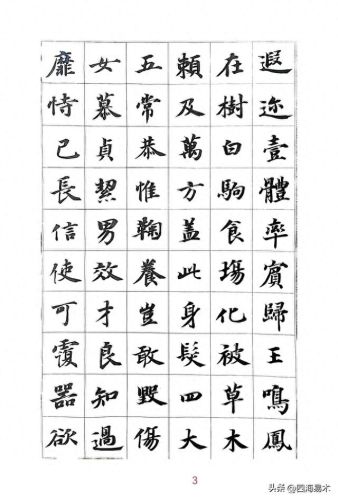 遐迩壹體率賓歸王鳴鳳
在樹白駒食塲化被草木
賴及萬方盖此身髮四大
五常恭惟鞠養豈敢毀傷
女慕貞絜男效才良知過
靡恃已長信使可覆器欲
3
头条 @四海易木